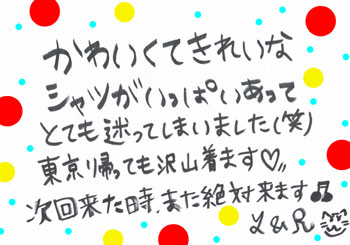 かわいくてきれいな
シャツがいっぱいあって
とても迷ってしまいました(笑)
東京帰っても沢山着ます♡〃
次回来た時、また絶対来ます♫
Y&R